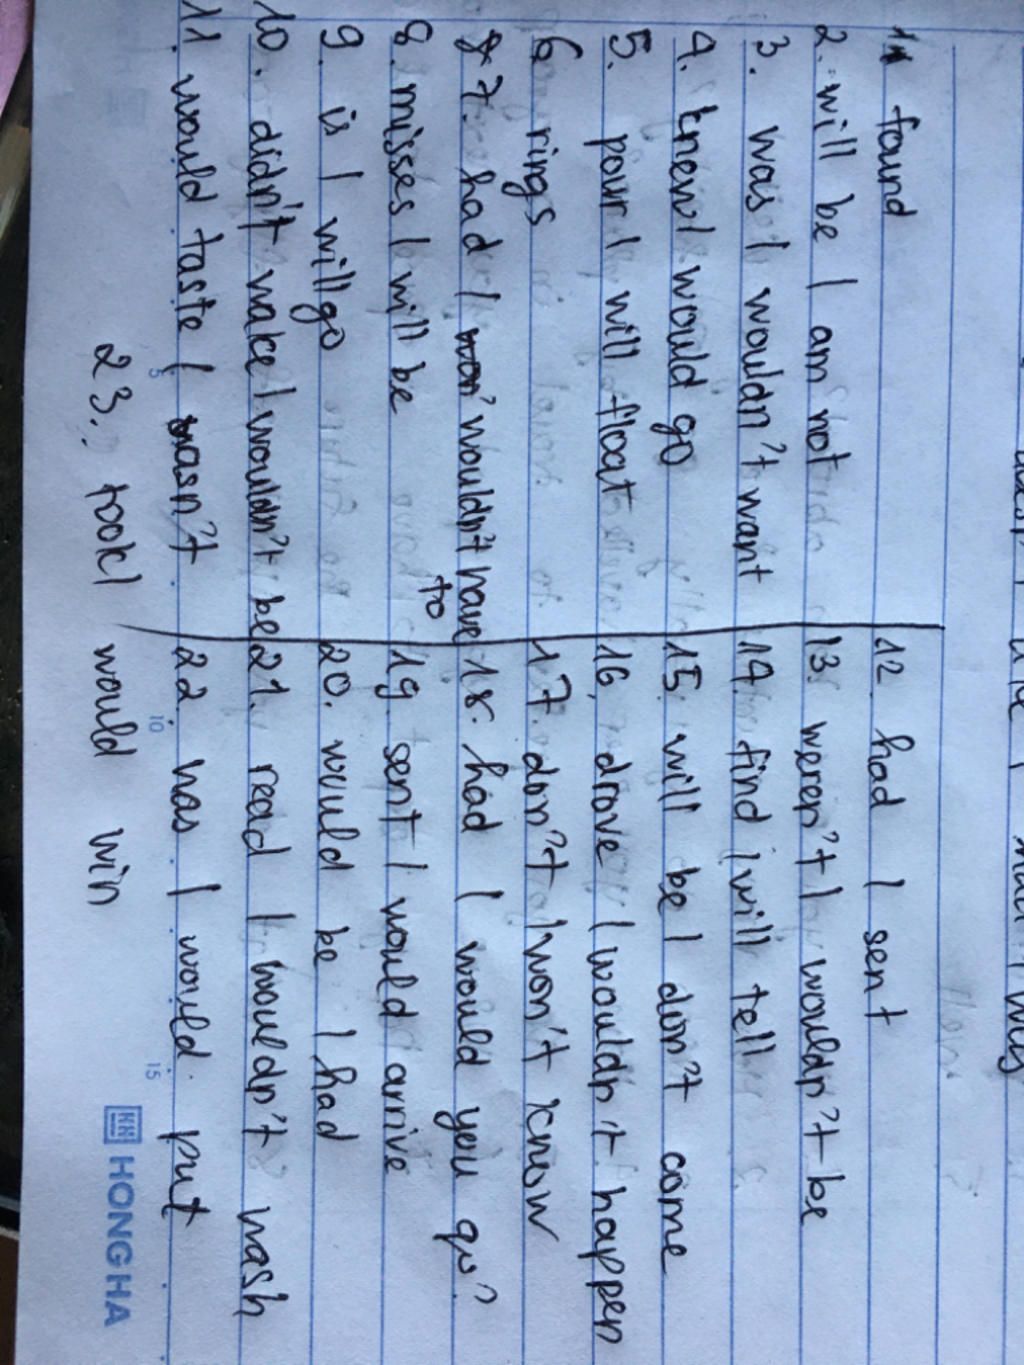 1. found
2. will be / am not
3. was / wouldn't want
4. knew / would go
5. pour / will float
6. rings
7. had / wouldn't have to
8. misses / will be
9. is / will go
10. didn't wake / wouldn't be
11. would taste / wasn't
12. had / sent
13. weren't / wouldn't be
14. find / will tell
15. will be / don't come
16. drove / wouldn't happen
17. don't / won't know
18. had / would you go?
19. sent / would arrive
20. would be / had
21. read / wouldn't wash
22. was / would put
23. took / would win
5
10
15
HONG HA